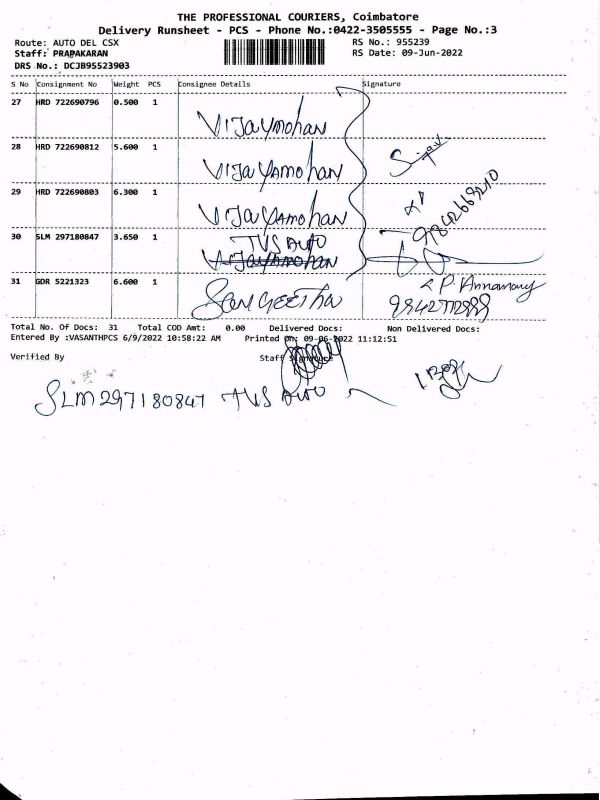 THE PROFESSIONAL COURIERS, Coimbatore
Delivery Runsheet - PCS - Phone No.:0422-3505555 - Page No.:3
Route: AUTO DEL CSX RS No.: 955239
Staff: PRAPAKARAN RS Date: 09-Jun-2022
DRS No.: DCJB95523903
S No Consignment No Weight PCS Consignee Details Signature
27 HRD 722690796 0.500 1 VIJAYMOHAN
28 HRD 722690812 5.600 1 VIJAYAMOHAN
29 HRD 722690803 6.300 1 VIJAYAMOHAN
9842669210
30 SLM 297180847 3.650 1 TVS AUTO
VIJAYAMOHAN
31 GDR 5221323 6.600 1 SANGEETHA
Total No. Of Docs: 31 Total COD Amt: 0.00 Delivered Docs: Non Delivered Docs:
Entered By :VASANTHPCS 6/9/2022 10:58:22 AM Printed On: 09-06-2022 11:12:51
Verified By Staff Signature
SLM297180847 TVS AUTO